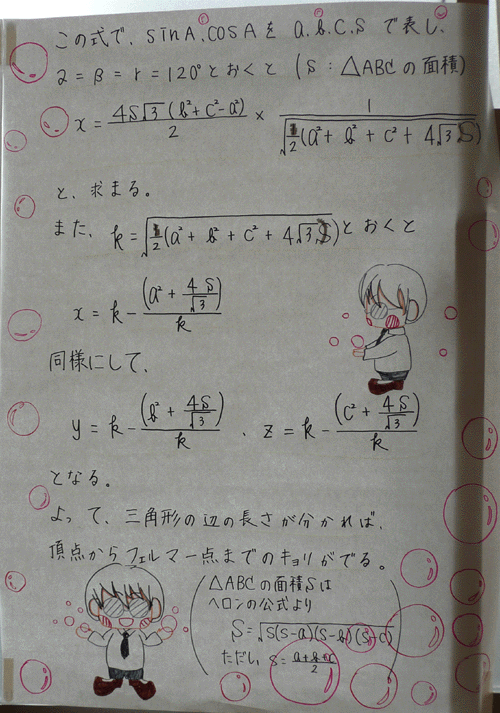 この式で、sinA、cosAを a、b、c、Sで表し、
α=β=γ=120°とおくと (S:△ABCの面積)
x = 4S√3(b²+c²-a²)/2 × 1/√(1/2(a²+b²+c²+4√3S))
と、求まる。
また、k=√(1/2(a²+b²+c²+4√3S))とおくと
x = k-(a²+4S/√3)/k
同様にして、
y = k-(b²+4S/√3)/k 、z = k-(c²+4S/√3)/k
となる。
よって、三角形の辺の長さが分かれば、
頂点からフェルマー点までのキョリがでる。
(△ABCの面積Sは
ヘロンの公式より
S=√(s(s-a)(s-b)(s-c))
ただし s=(a+b+c)/2)